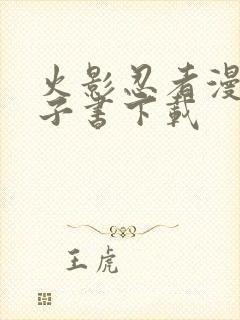 火影忍者漫
子书下載
王虎